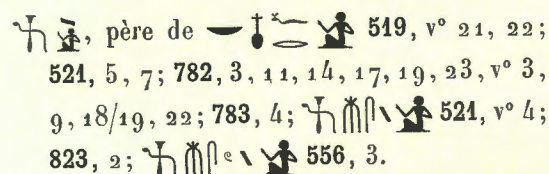 , père de 519, v° 21, 22;
521, 5, 7; 782, 3, 11, 14, 17, 19, 23, v° 3,
9, 18/19, 22; 783, 4; 521, v° 4;
823, 2; 556, 3.